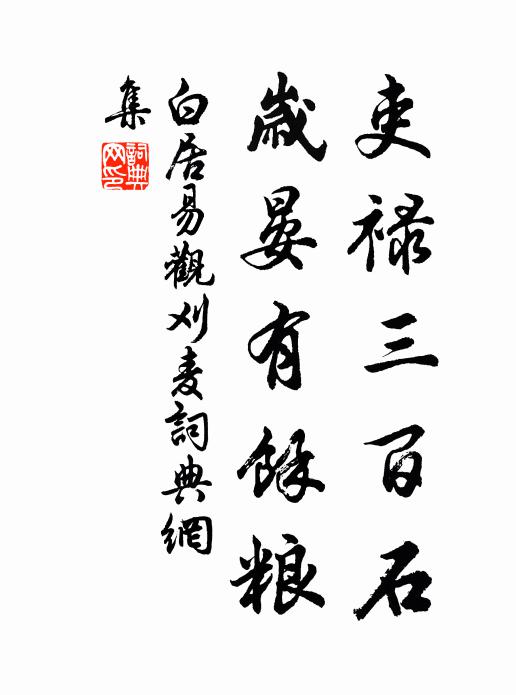 吏禄三百石
歲晏有餘粮
白居易觀刈麦詞典網
集
詞典
网印